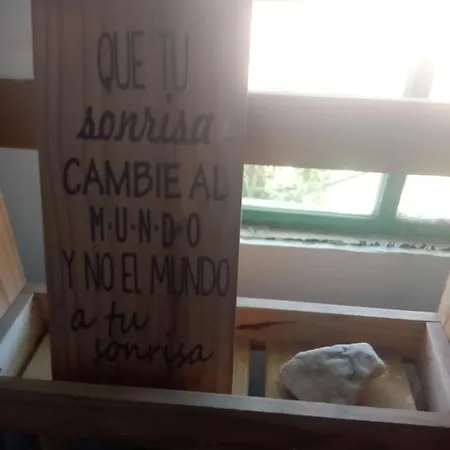 QUE TU
sonrisa
CAMBIE AL
M·U·N·D·O
Y NO EL MUNDO
a tu
sonrisa